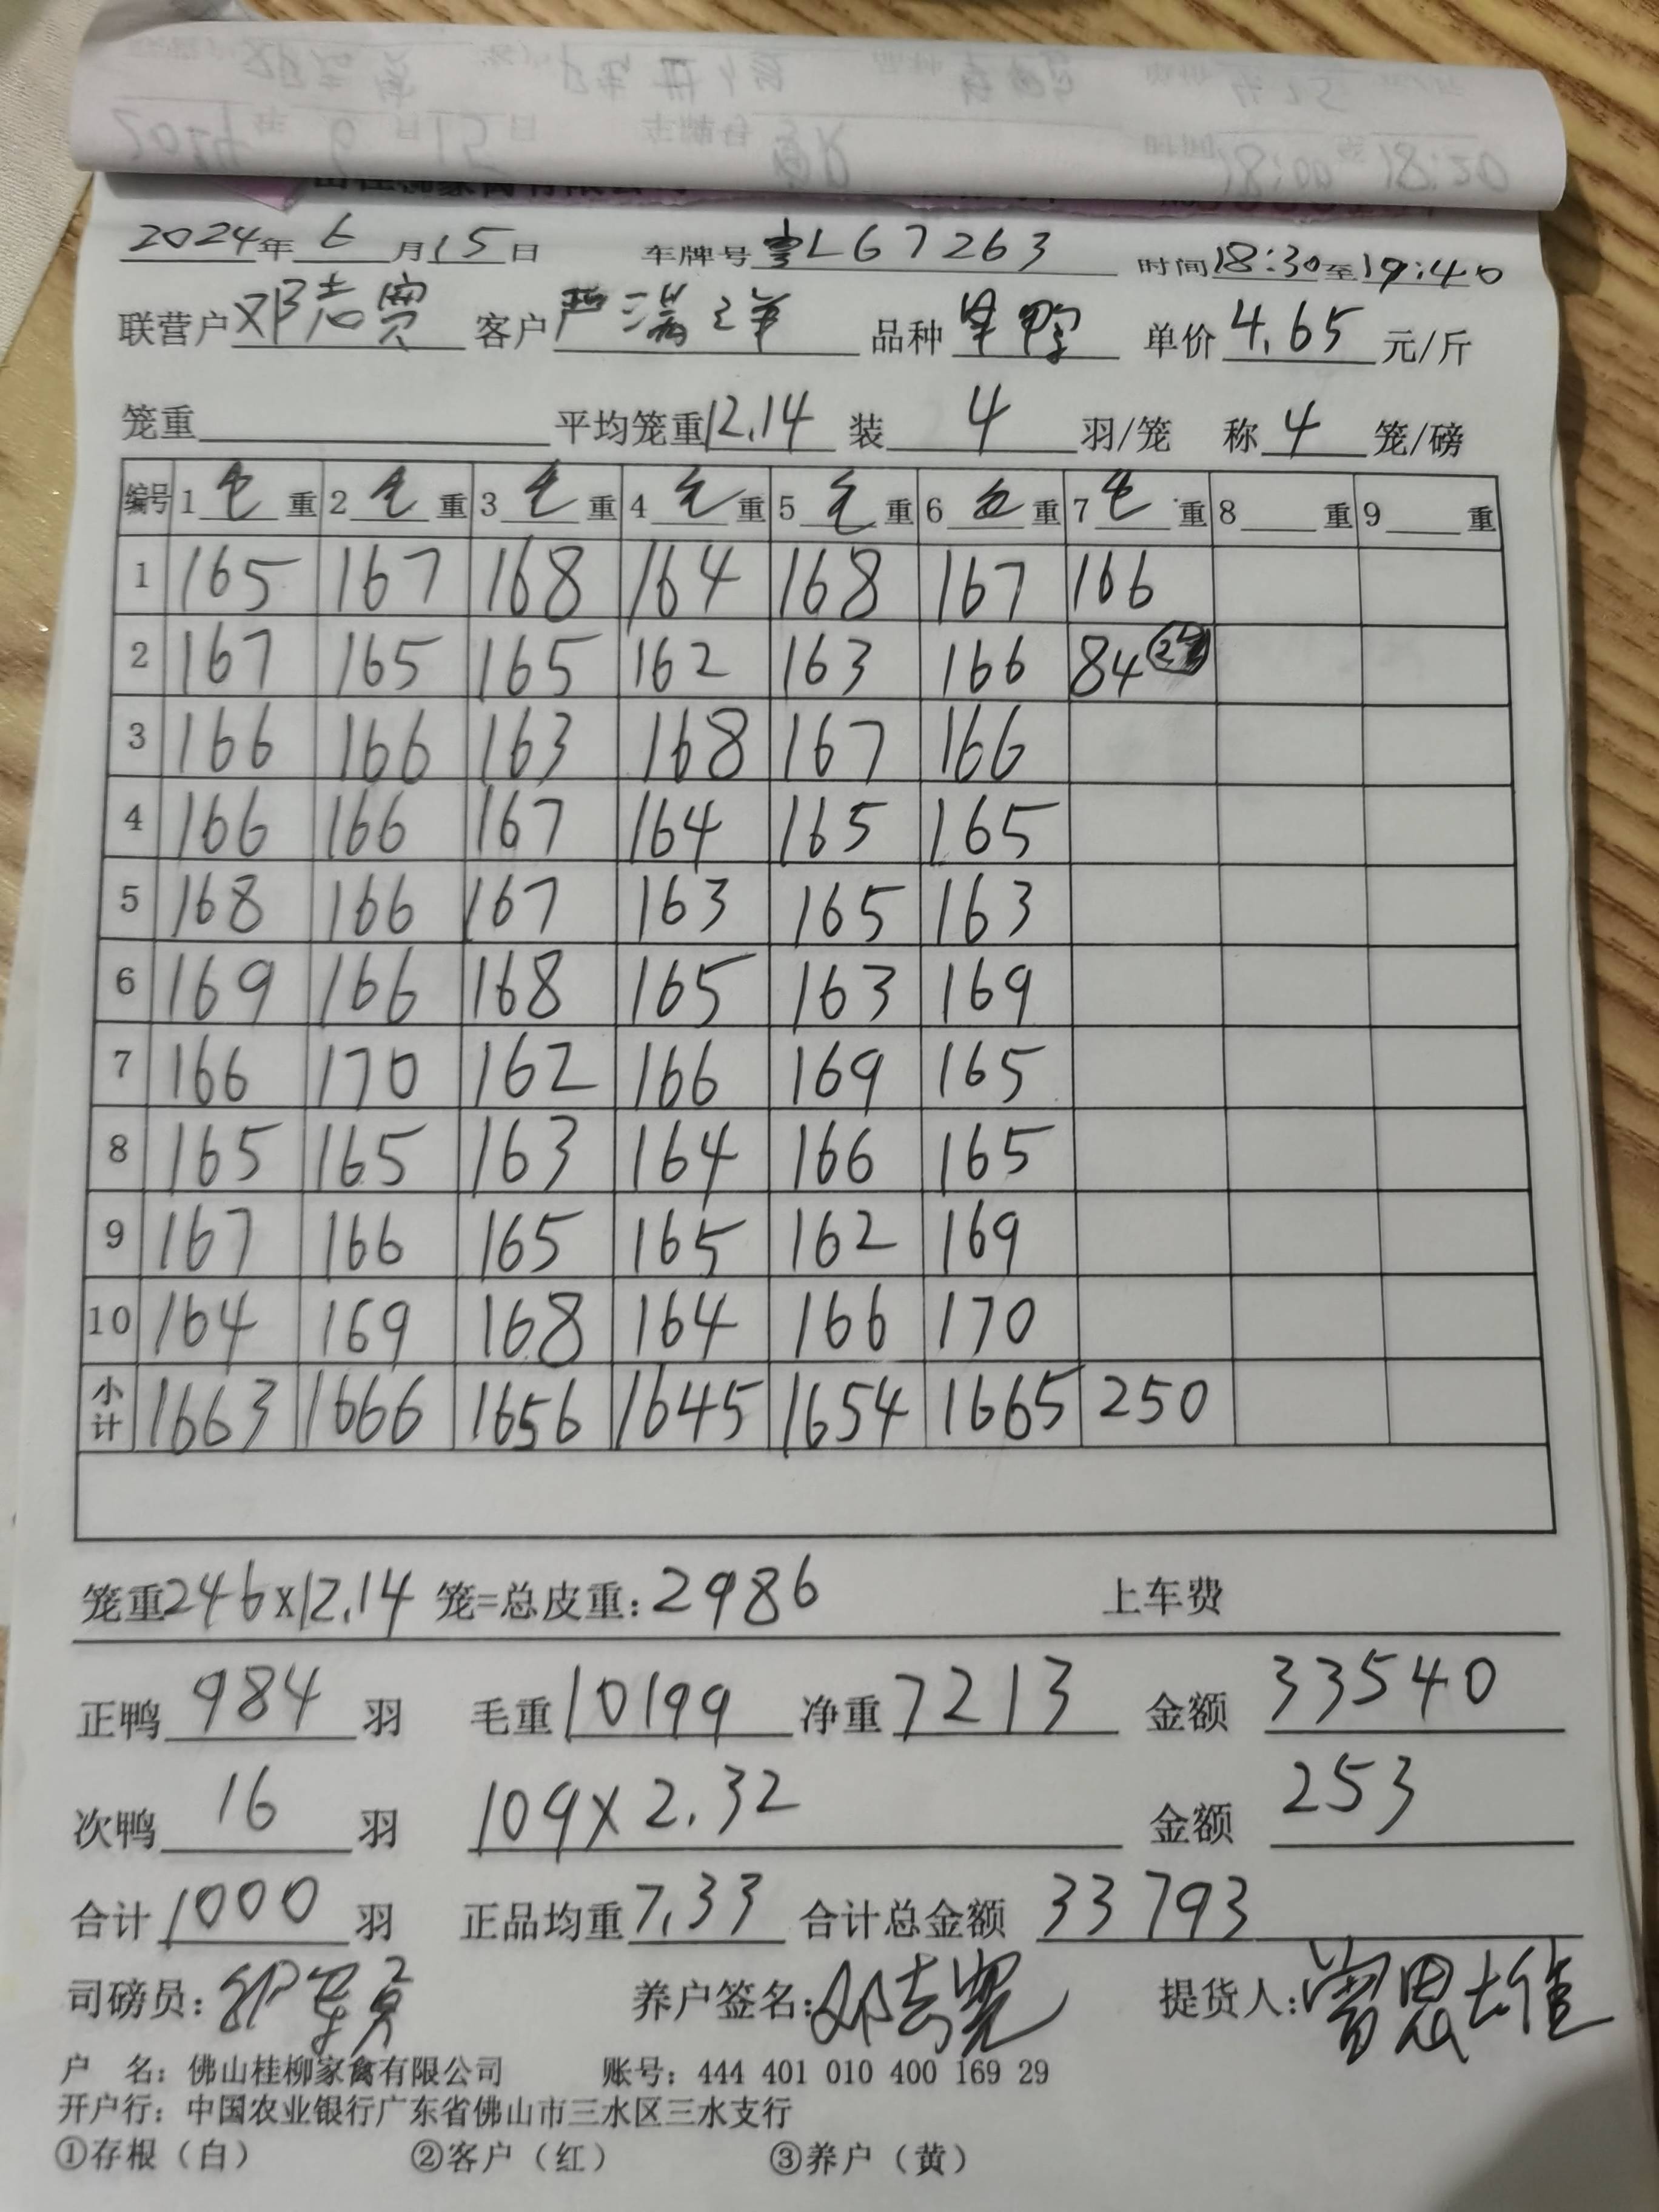 2024年6月15日 车牌号粤L67263 时间18:30至19:40
联营户邓志宽 客户严满洋 品种 单价4.65元/斤
笼重 平均笼重12.14 装4羽/笼 称4笼/磅
编号 1毛重 2毛重 3毛重 4毛重 5毛重 6毛重 7毛重 8重 9重
1 165 167 168 164 168 167 166
2 167 165 165 162 163 166 84
3 166 166 163 168 167 166
4 166 166 167 164 165 165
5 168 166 167 163 165 163
6 169 166 168 165 163 169
7 166 170 162 166 169 165
8 165 165 163 164 166 165
9 167 166 165 165 162 169
10 164 169 168 164 166 170
小计 1663 1666 1656 1645 1654 1665 250
笼重246x12.14笼=总皮重:2986 上车费
正鸭984羽 毛重10199 净重7213 金额33540
次鸭16羽 109x2.32 金额253
合计1000羽 正品均重7.33 合计总金额33793
司磅员: 养户签名:邓志宽 提货人:
户 名:佛山桂柳家禽有限公司 账号:444 401 010 400 169 29
开户行:中国农业银行广东省佛山市三水区三水支行
①存根（白） ②客户（红） ③养户（黄）